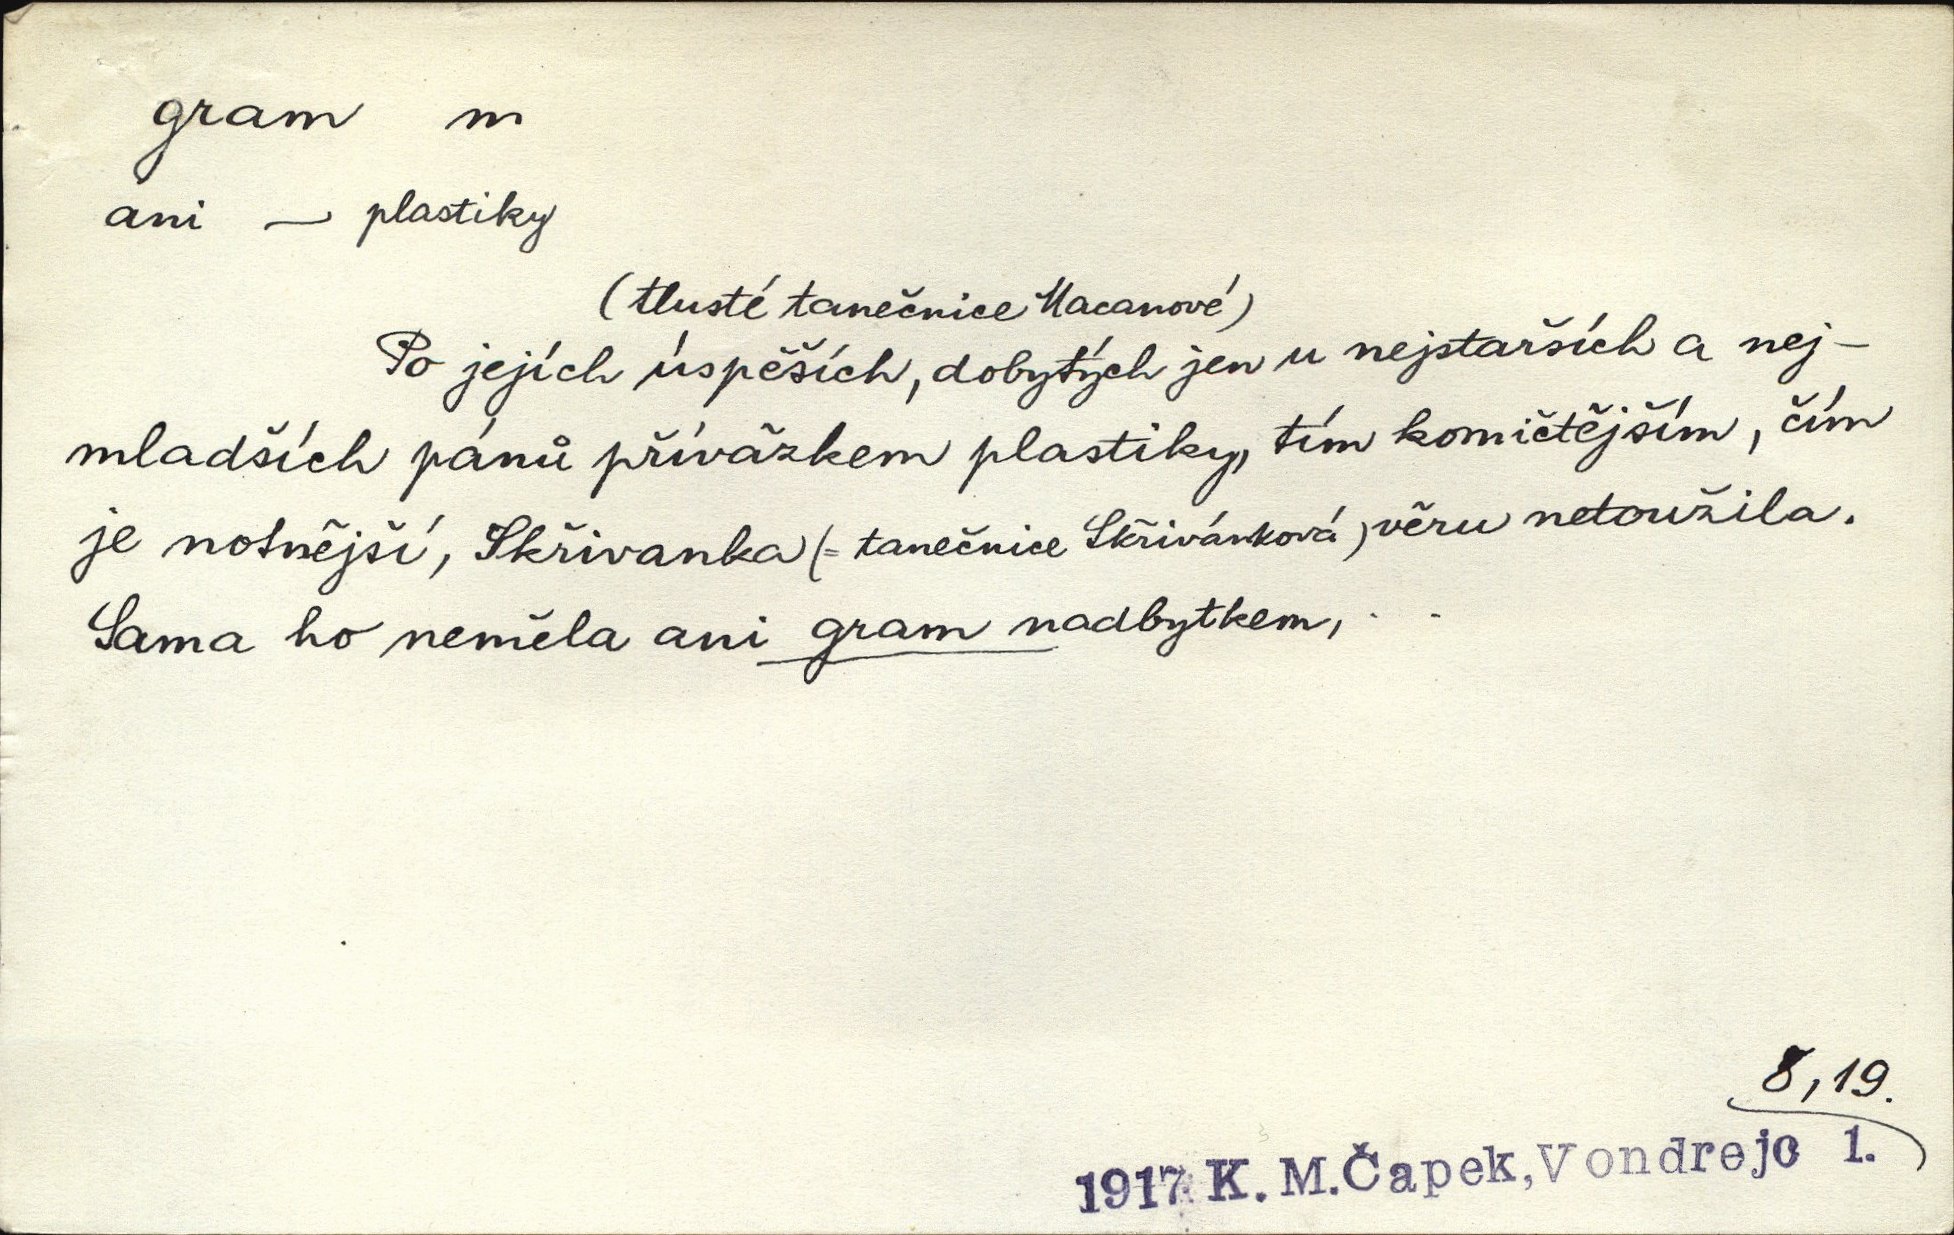 gram m
ani — plastiky
(tlusté tanečnice Macanové)
Po jejích úspěších, dobytých jen u nejstarších a nej-
mladších pánů přívažkem plastiky, tím komičtějším, čím
je notnější, Skřivanka (= tanečnice Skřivánková) věru netoužila.
Sama ho neměla ani gram nadbytkem, . .
8, 19.
1917 K. M. Čapek, Vondrejc 1.